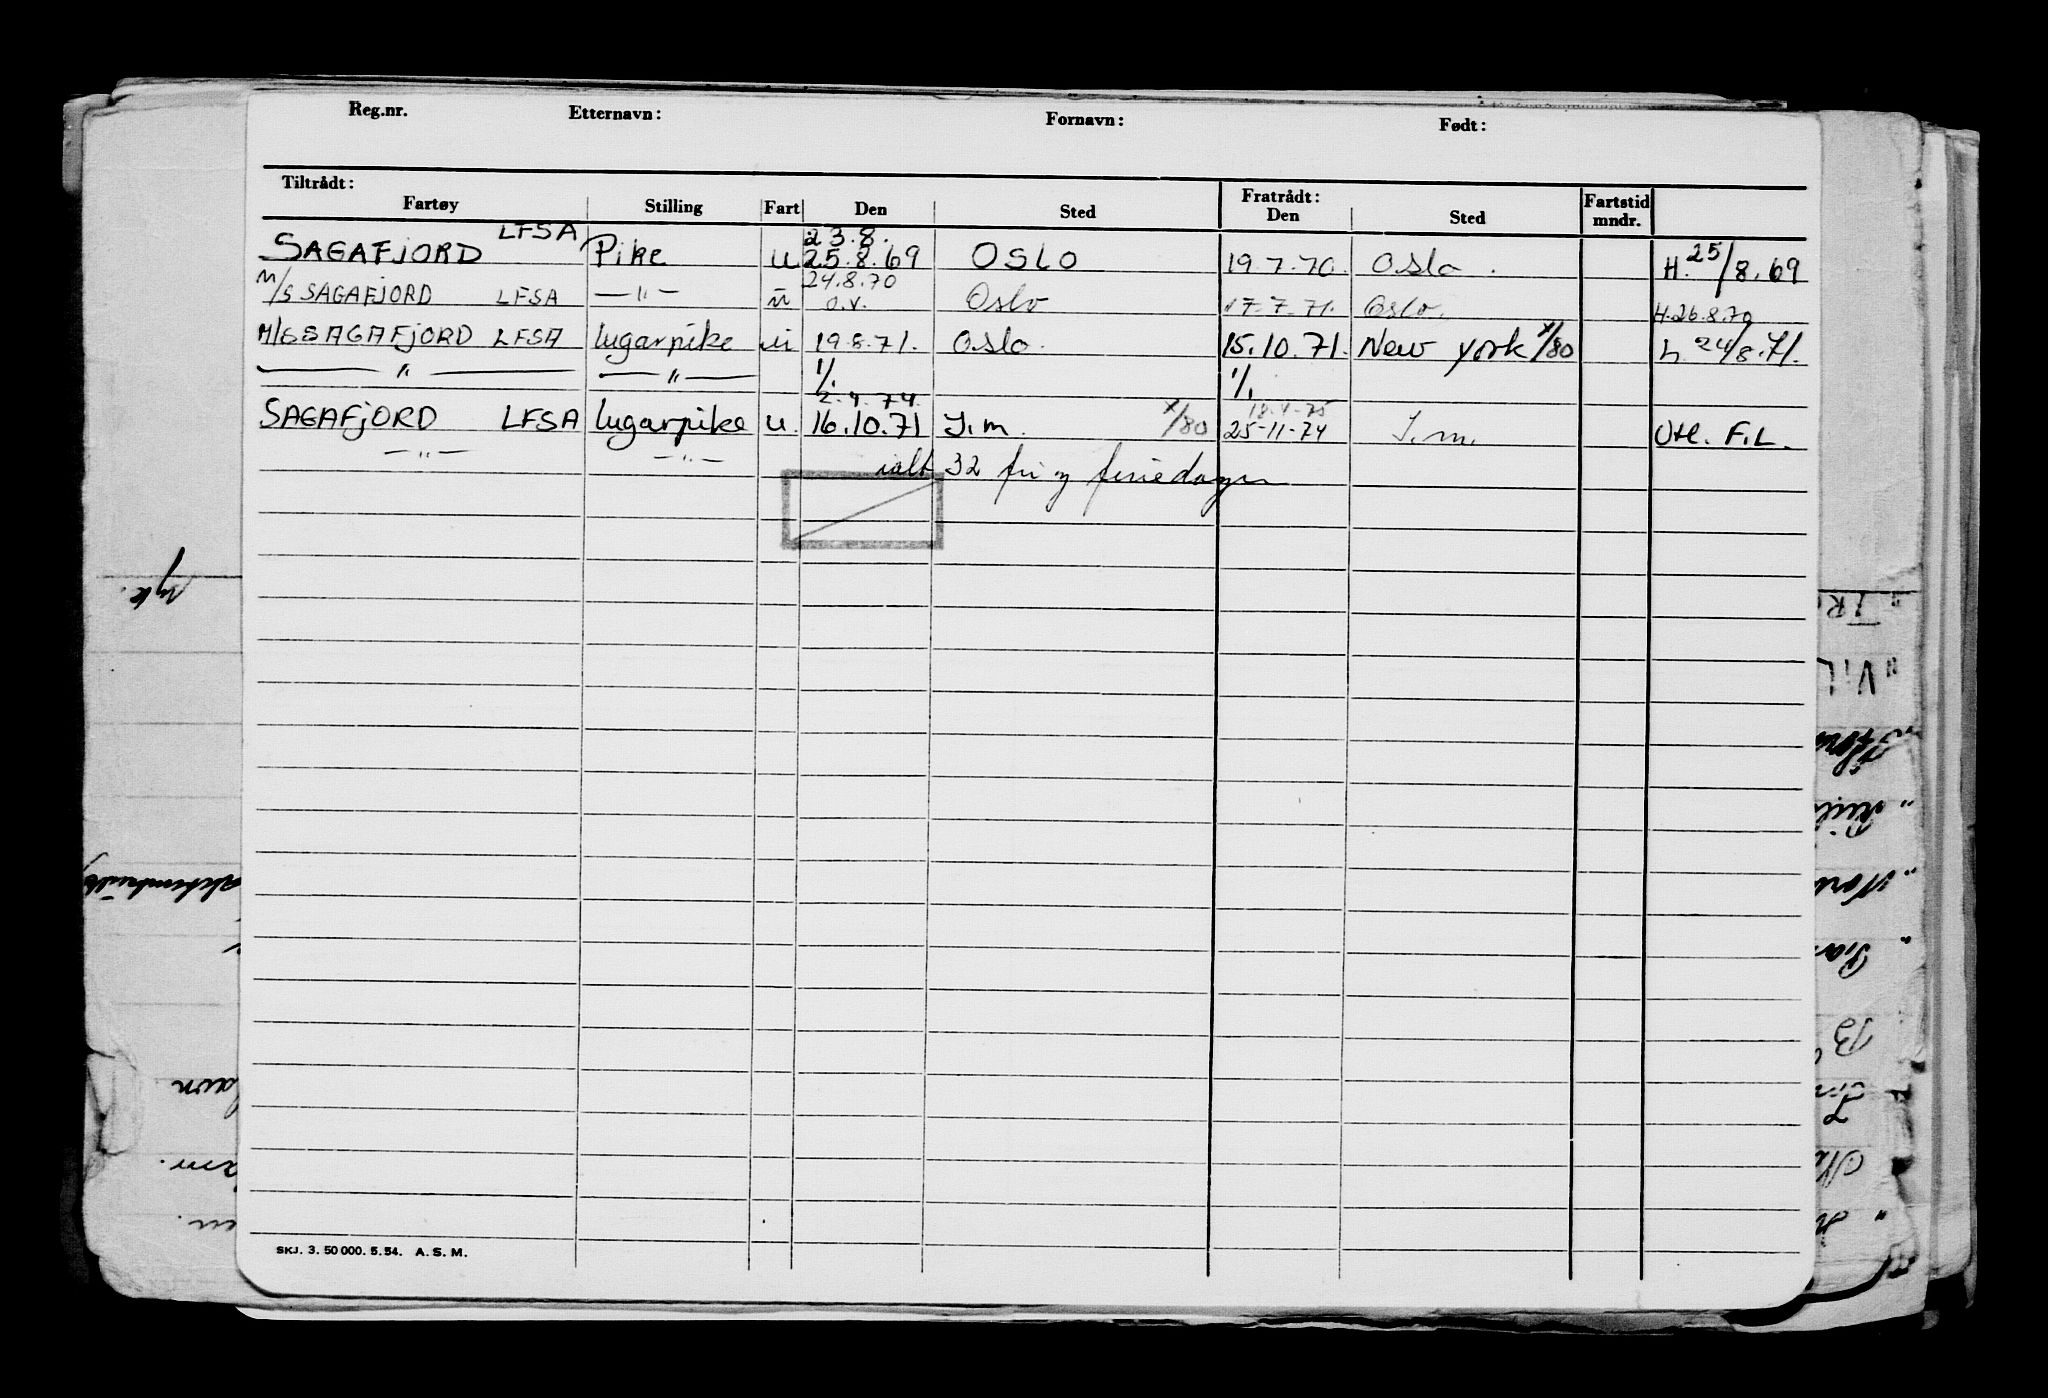 Reg.nr. Etternavn: Fornavn: Født:
Tiltrådt: Fratrådt:
Fartøy Stilling Fart Den Sted Den Sted Fartstid mndr.
LFSA 23.8.
SAGAFJORD Pike u 25.8.69 OSLO 19.7.70. Oslo. H. 25/8.69
24.8.70
M/S SAGAFJORD LFSA —"— ü o.v. Oslo 17-7-71. Oslo. H.26.8.70
M/S SAGAFJORD LFSA lugarpike ui 19.8.71. Oslo. 15.10.71. New York x/80 h. 24/8.71.
—"— —"— 1/1 1/1
2.4.74. 18-4-75
SAGAFJORD LFSA lugarpike u. 16.10.71 J.m. x/80 25-11-74 J.m. Utl. F.L.
—"— —"—
ialt 32 fri og feriedager
SKJ. 3. 50 000. 5. 54. A. S. M.